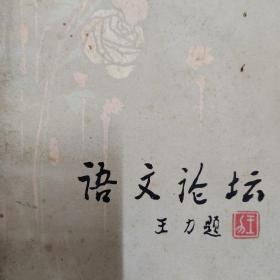 语文论坛
王力题